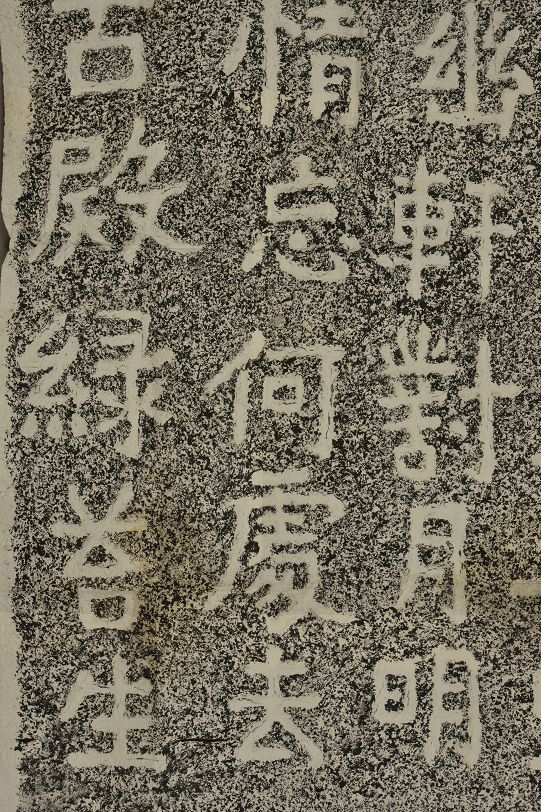 幽軒對月明
情忘何處去
古殿綠苔生